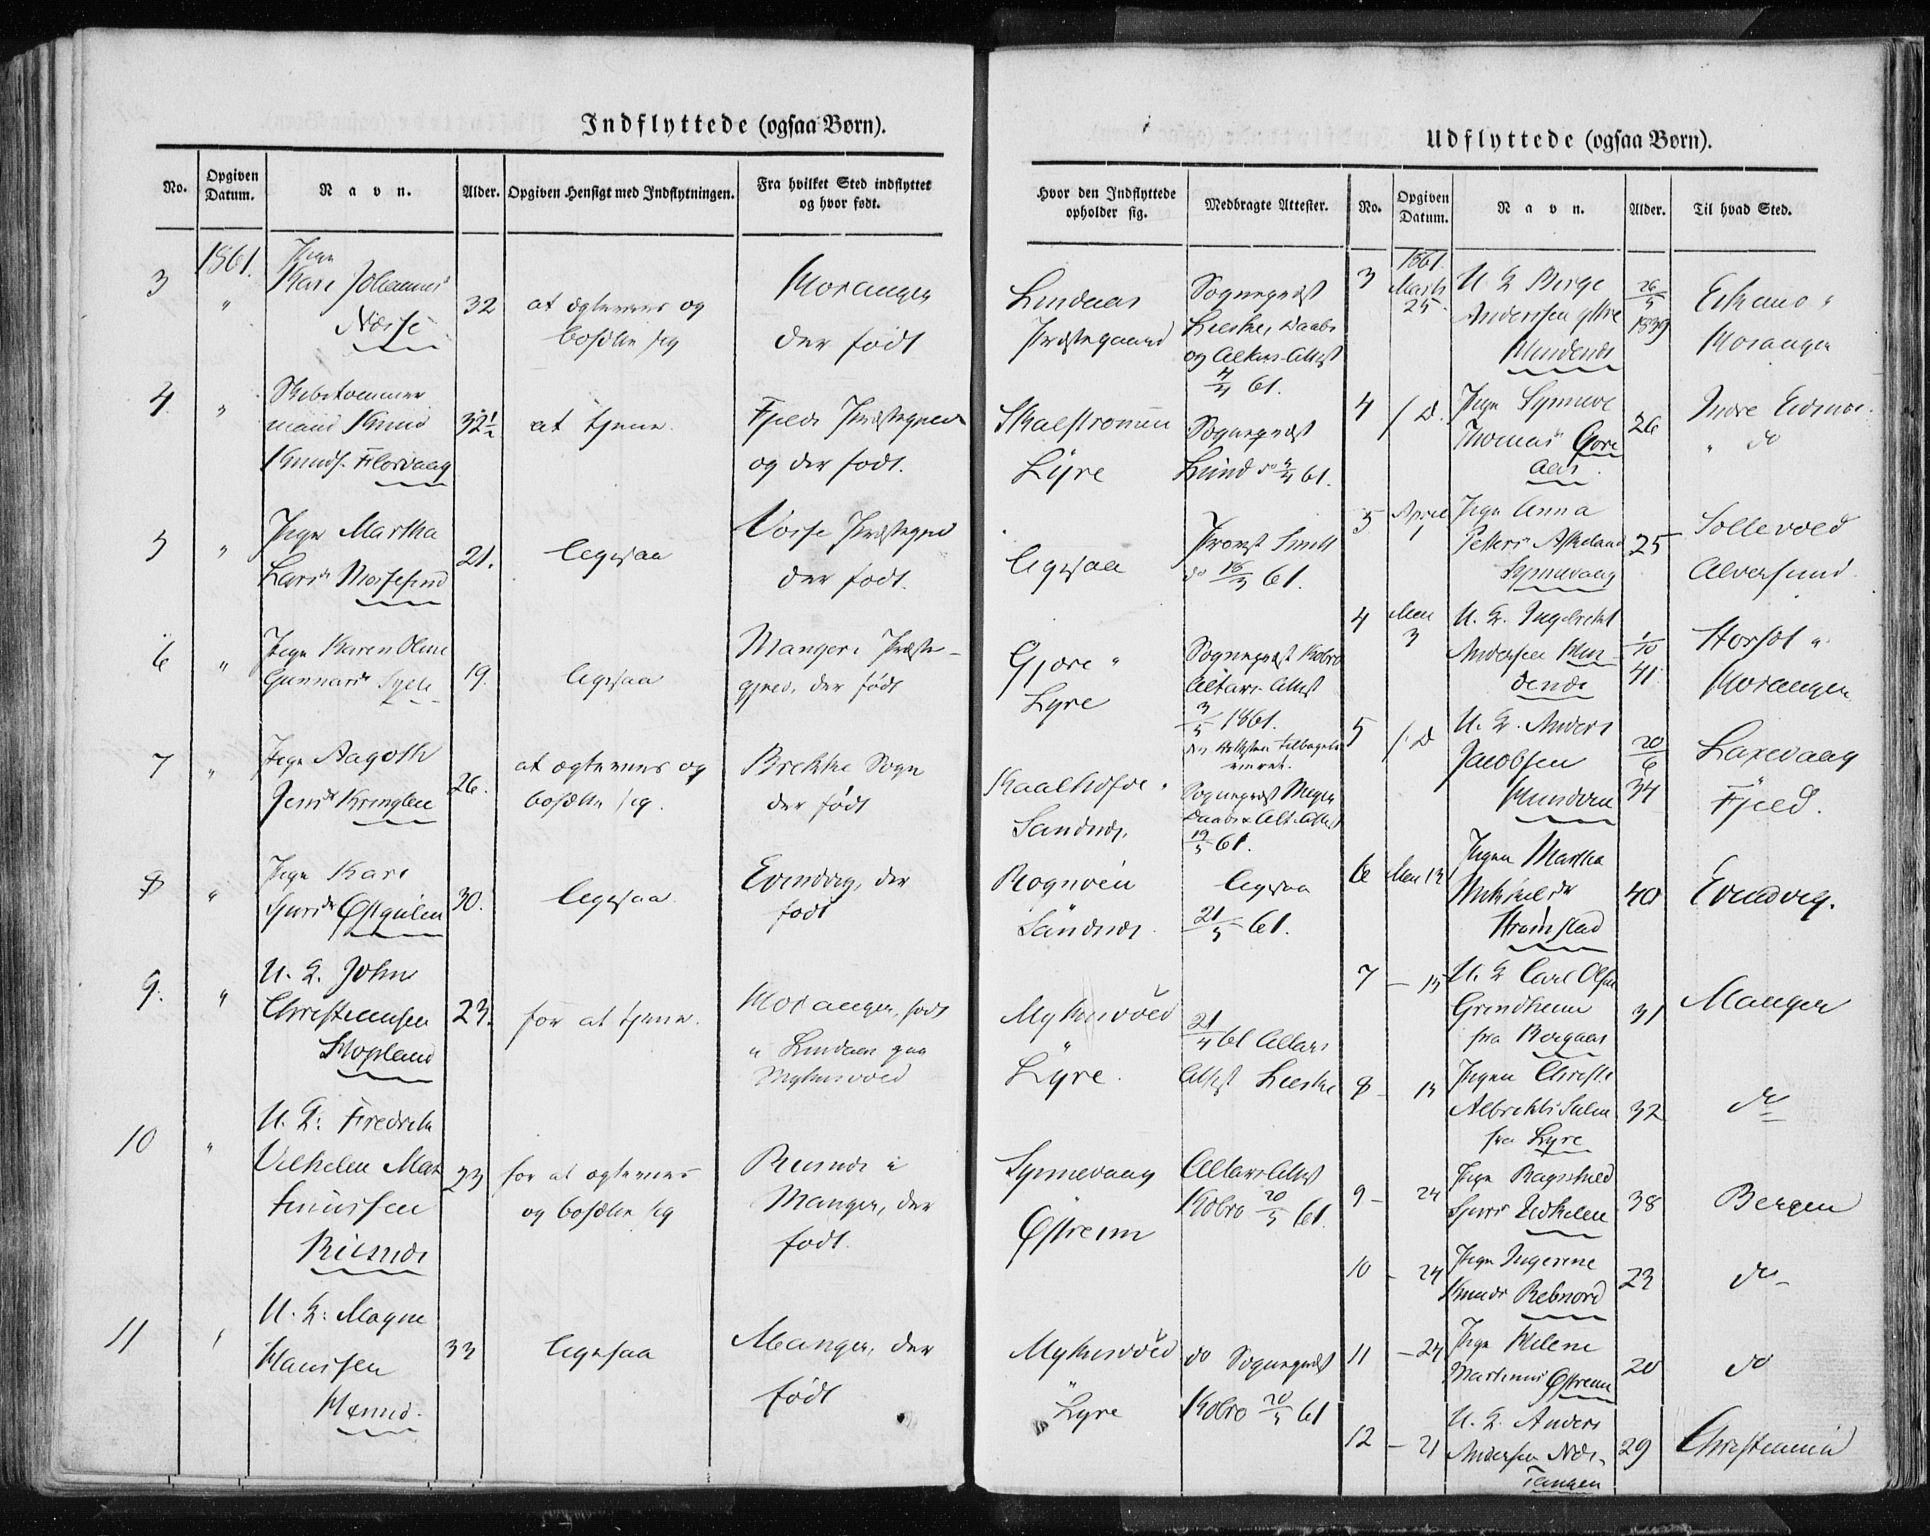 Indflyttede (ogsaa Børn).
No.
Opgiven Datum.
Navn.
Alder.
Opgiven Hensigt med Indflytningen.
Fra hvilket Sted indflyttet og hvor født.
Hvor den Indflyttede opholder sig.
Medbragte Attester.
1861.
3 " Pige
Kari Johannes
Næsse
32
at ægtevies og
bosætte sig
Hosanger
der født
Lindaas
Præstegaard
Sognepræst
Leeske, Daabs
og Alters Attest
4/4 61.
4 "
mand Knud
Knuds. Florvaag
32½
at tjene.
Fjelds Præstegjeld
og der født.
Skalstrømmen
Lÿre
Sognepræst
Lund do 61.
5 " Pige Martha
Larsdr
21.
ligesaa
Vosse Præstegjeld
der født.
ligesaa
Provst
do 16/3 61.
6 " Pige Karen Oline
Gunnarsdr
19.
ligesaa
Mangers Præste-
gjeld, der født
Gjøre "
Lyre
Sognepræst Kobro
Altars Attest
3/5 1861.
7 " Pige Aagoth
Jensdr Kringlen
26.
at ægtevies og
bosætte sig.
Brekke Sogn
der født
Sandnæs.
Sognepræst Meyer
Daabs & Alt. Attest
19/5 61.
8 " Pige Kari
30.
ligesaa.
Evindvig, der
født
Rognøen
Sandnæs.
ligesaa
21/5 61.
9. " U. K. John
Christiansen
Hopland
23.
for at tjene.
Hosanger, født
i Lindaas paa
Mykisvold
Mykisvold
"
Lÿre.
21/4 61 Altars
Attest Leeske
10 " U. K: Fredrik
Vilhelm Mar-
tinussen
Risnæs
23
for at ægtevies
og bosætte sig
Risnæs i
Manger, der
født.
Synnevaag
Østreim
Altars Attest
Kobro 20/5 61.
11 " U. K: Magne
Hanssen
33
ligesaa
Manger, der
født
Mykisvold
"
Lyre
do Sognepræst
Kobro 20/5 61
Udflyttede (ogsaa Børn).
No.
Opgiven Datum.
Navn.
Alder.
Til hvad Sted.
1861
3 Marts
25.
U. K Birge
Andersen ytre
26/5
1839
Hosanger
4 / D. Pige Synneve
Thomasdr
26
Indre
" do
5 April
1
Pige Anna
Petters Askeland
Synnevaag
25
Sollevold
Alversund.
4 Mai
3
U. K. Ingebrikt
Andersen
1/10
41.
Hosanger
5 / D U. K. Anders
Jacobsen
20/6
34
Laxevaag
Fjeld.
6 Mai 12
Pigen Martha
Mikkelsdr
Strømstad
40
Evindvig.
7 - 15 U. K Carl Olsen
Grendheim
fra
31
Manger
8 - 15 Pigen Christi
Albrekts
fra Lyre
32
do
9 - 24 Pige Ragnhild
38
Bergen
10 - 24 Pige Ingerine
Knuds Rebnord
23
do
11 - 24 Pige Helene
Martinus Østreim
20
do
12 - 21 U. K. Anders
Andersen
Tangen
29
Christiania